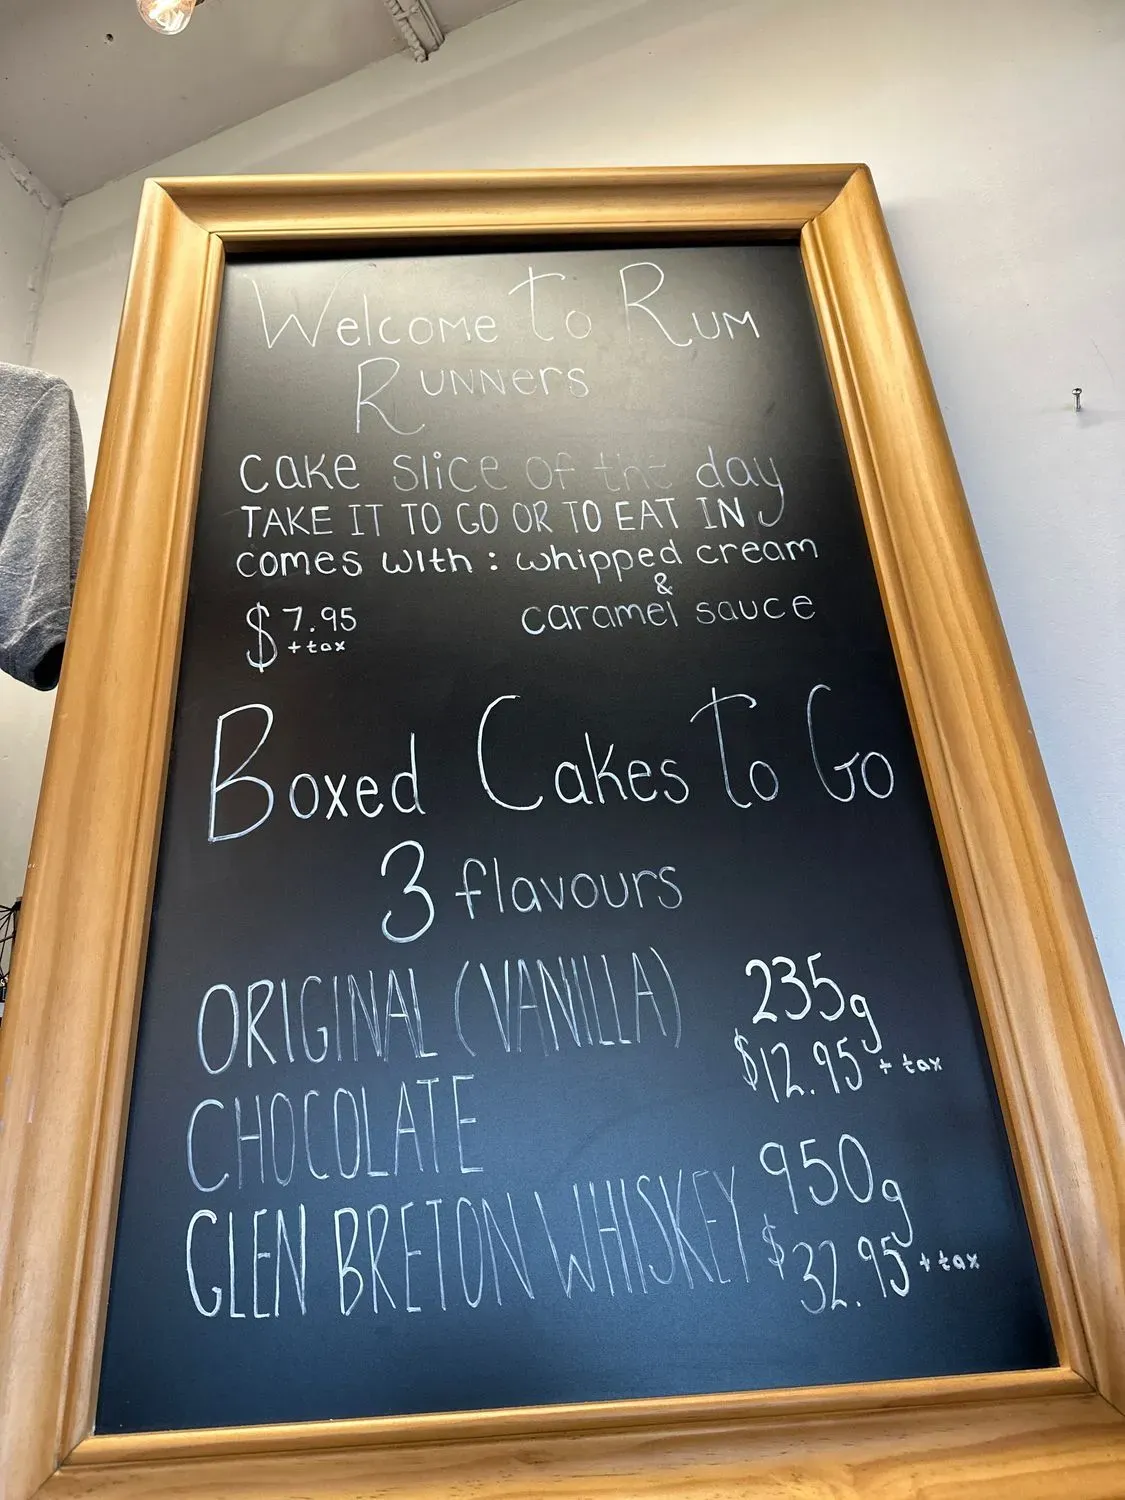 Welcome to Rum
Runners
cake slice of the day
TAKE IT TO GO OR TO EAT IN
comes with: whipped cream
&
$7.95 caramel sauce
+ tax
Boxed Cakes To Go
3 flavours
ORIGINAL (VANILLA) 235g
$12.95 + tax
CHOCOLATE
950g
GLEN BRETON WHISKEY $32.95 + tax